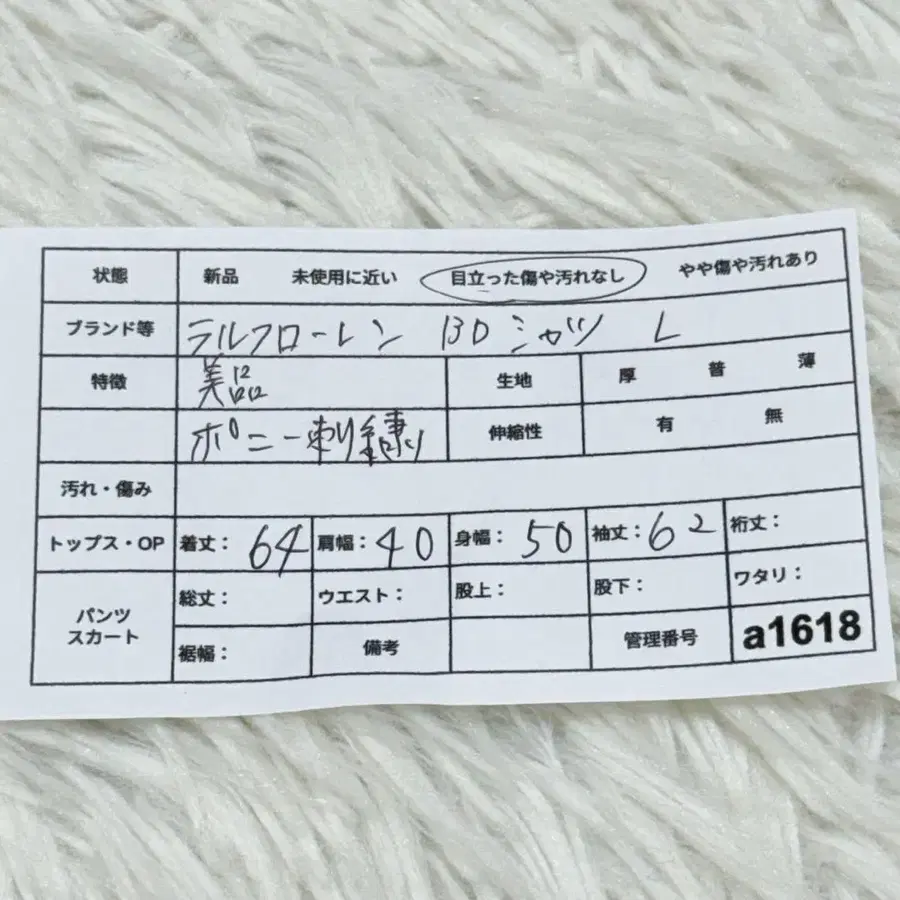 状態 新品 未使用に近い 目立った傷や汚れなし やや傷や汚れあり
ブランド等 ラルフローレン BDシャツ L
特徴 美品 生地 厚 普 薄
ポニー刺繍 伸縮性 有 無
汚れ・傷み
トップス・OP 着丈: 64 肩幅: 40 身幅: 50 袖丈: 62 裄丈:
パンツ スカート 総丈: ウエスト: 股上: 股下: ワタリ:
裾幅: 備考 管理番号 a1618